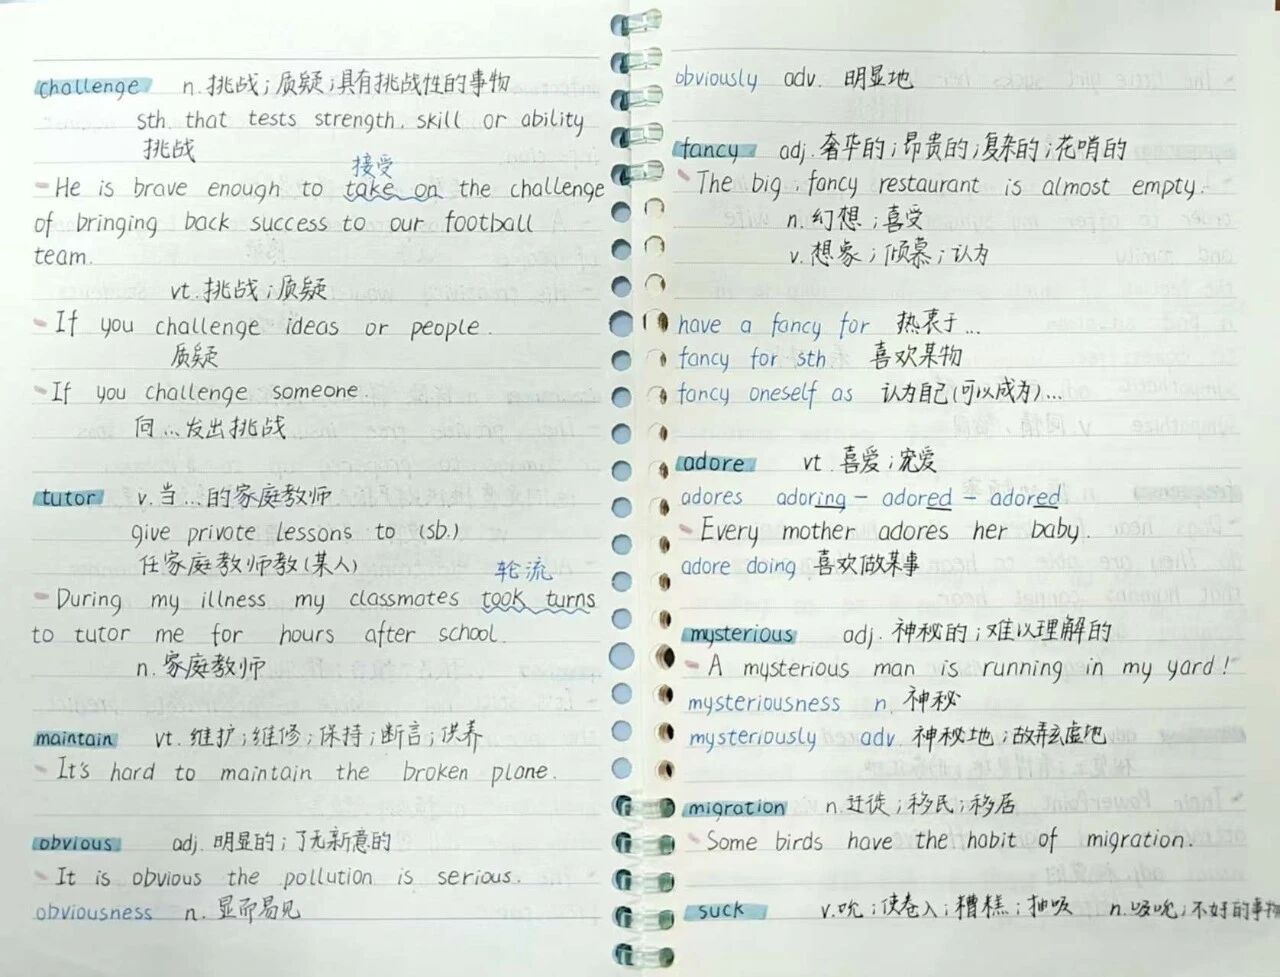 challenge n.挑战;质疑;具有挑战性的事物
sth. that tests strength. skill or ability
挑战
接受
- He is brave enough to take on the challenge
of bringing back success to our football
team.
vt.挑战;质疑
- If you challenge ideas or people.
质疑
- If you challenge someone.
向…发出挑战
tutor v.当…的家庭教师
give private lessons to (sb.)
任家庭教师教(某人)
轮流
- During my illness my classmates took turns
to tutor me for hours after school.
n.家庭教师
maintain vt.维护;维修;保持;断言;供养
- It's hard to maintain the broken plane.
obvious adj.明显的;了无新意的
- It is obvious the pollution is serious.
obviousness n.显而易见
obviously adv. 明显地
fancy adj.奢华的;昂贵的;复杂的;花哨的
- The big, fancy restaurant is almost empty.
n.幻想;喜爱
v.想象;倾慕;认为
have a fancy for 热衷于…
fancy for sth 喜欢某物
fancy oneself as 认为自己(可以成为)…
adore vt.喜爱;宠爱
adores adoring - adored - adored
- Every mother adores her baby.
adore doing 喜欢做某事
mysterious adj.神秘的;难以理解的
- A mysterious man is running in my yard!
mysteriousness n.神秘
mysteriously adv.神秘地;故弄玄虚地
migration n.迁徙;移民;移居
- Some birds have the habit of migration.
suck v.吮;使卷入;糟糕;抽吸 n.吸吮;不好的事物